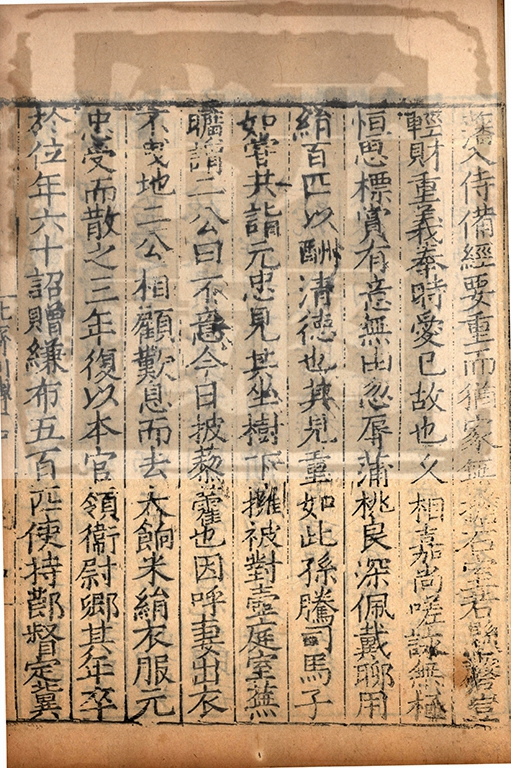 藩入侍備經要重而猶家無擔石室若懸磬豈
輕財重義奉時愛已故也久相嘉尚嗟詠無極
恒思標賞有意無由忽辱蒲桃良深佩戴聊用
絹百匹以酬清德也其見重如此孫騰司馬子
如嘗共詣元忠見其坐樹下擁被對壺庭室蕪
曠謂二公曰不意今日披藜藿也因呼妻出衣
不曳地二公相顧歎息而去大餉米絹衣服元
忠受而散之三年復以本官領衛尉卿其年卒
於位年六十詔贈縑布五百匹使持節督定冀